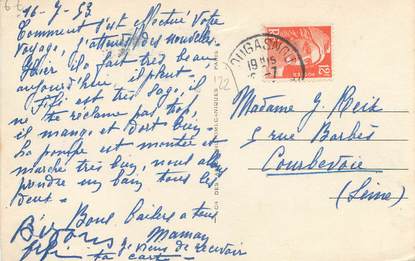 16-7-53
Comment s'est effectué Votre
voyage, j'attends des nouvelles
Hier il a fait très beau
aujourd'hui il pleut.
Fifi est très sage, il
ne te réclame pas trop,
il mange et dort bien.
La pompe est montée et
marche très bien, nous allons
prendre un bain tous les
deux.
Bons baisers à tous
Maman
je viens de recevoir
ta carte
OUGASNOU
19 H 15
-7
POSTES
12F
122
Madame J. Reik
5 rue Barbès
Courbevoie
(Seine)